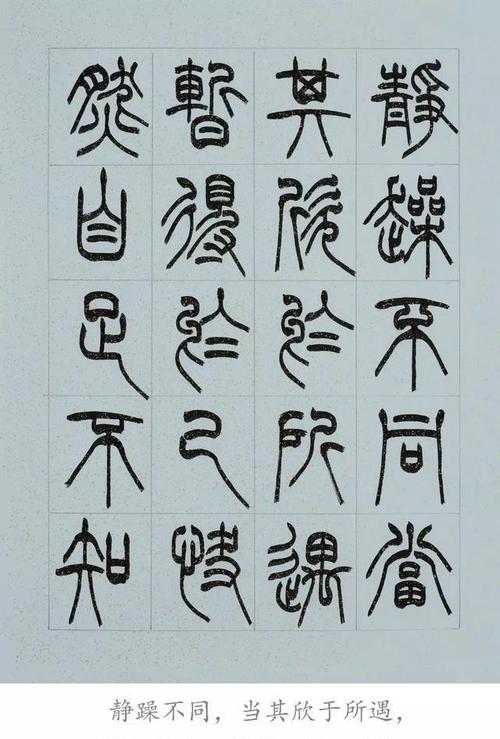 靜躁不同當
其欣於所遇
暫得於己快
然自足不知
静躁不同，当其欣于所遇，